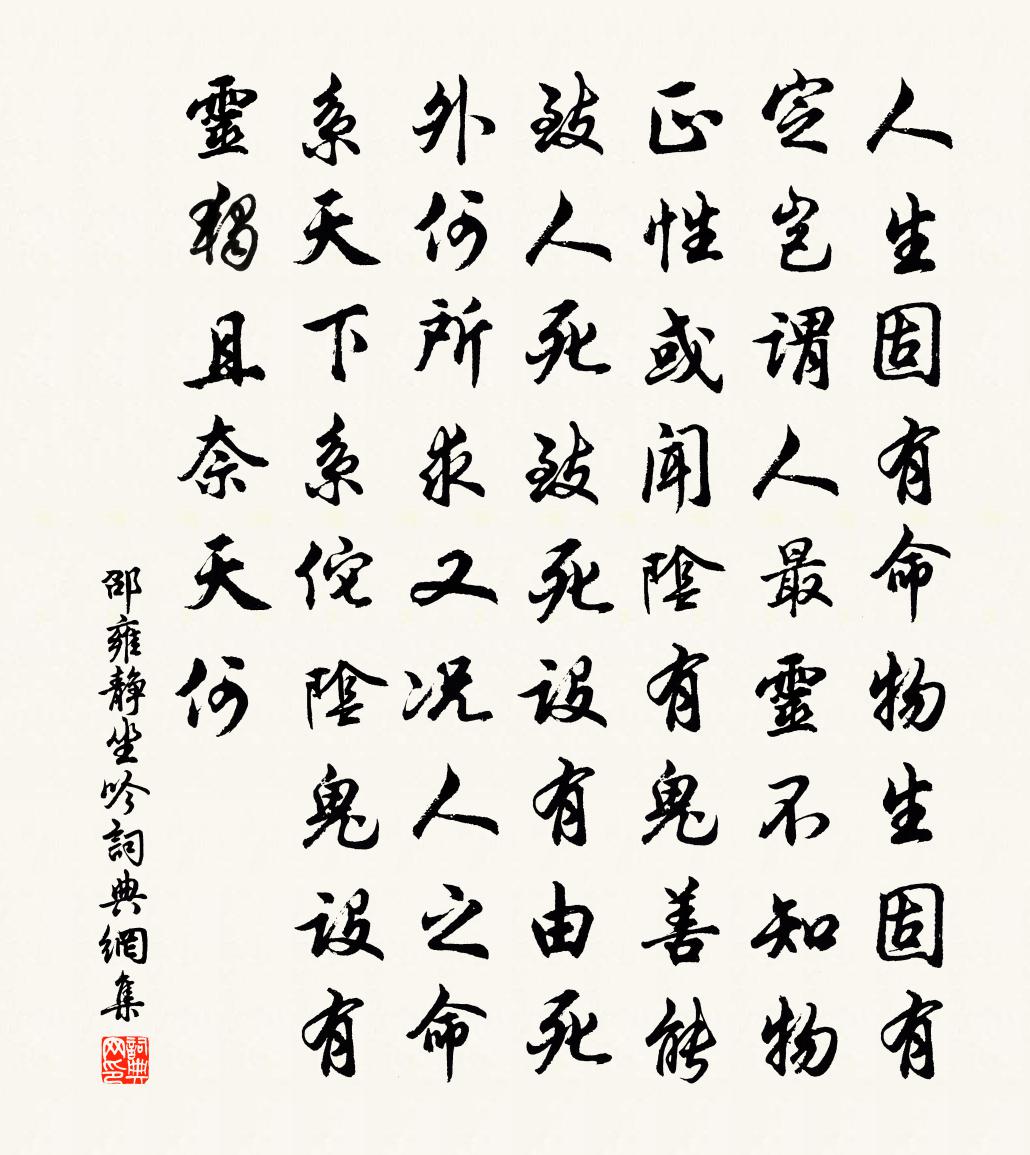 人生固有命物生固有
定豈謂人最靈不知物
正性或聞陰有鬼善能
致人死致死設有由死
外何所求又况人之命
系天下系佗陰鬼設有
靈獨且奈天何
邵雍静坐吟詞典網集
詞典网印